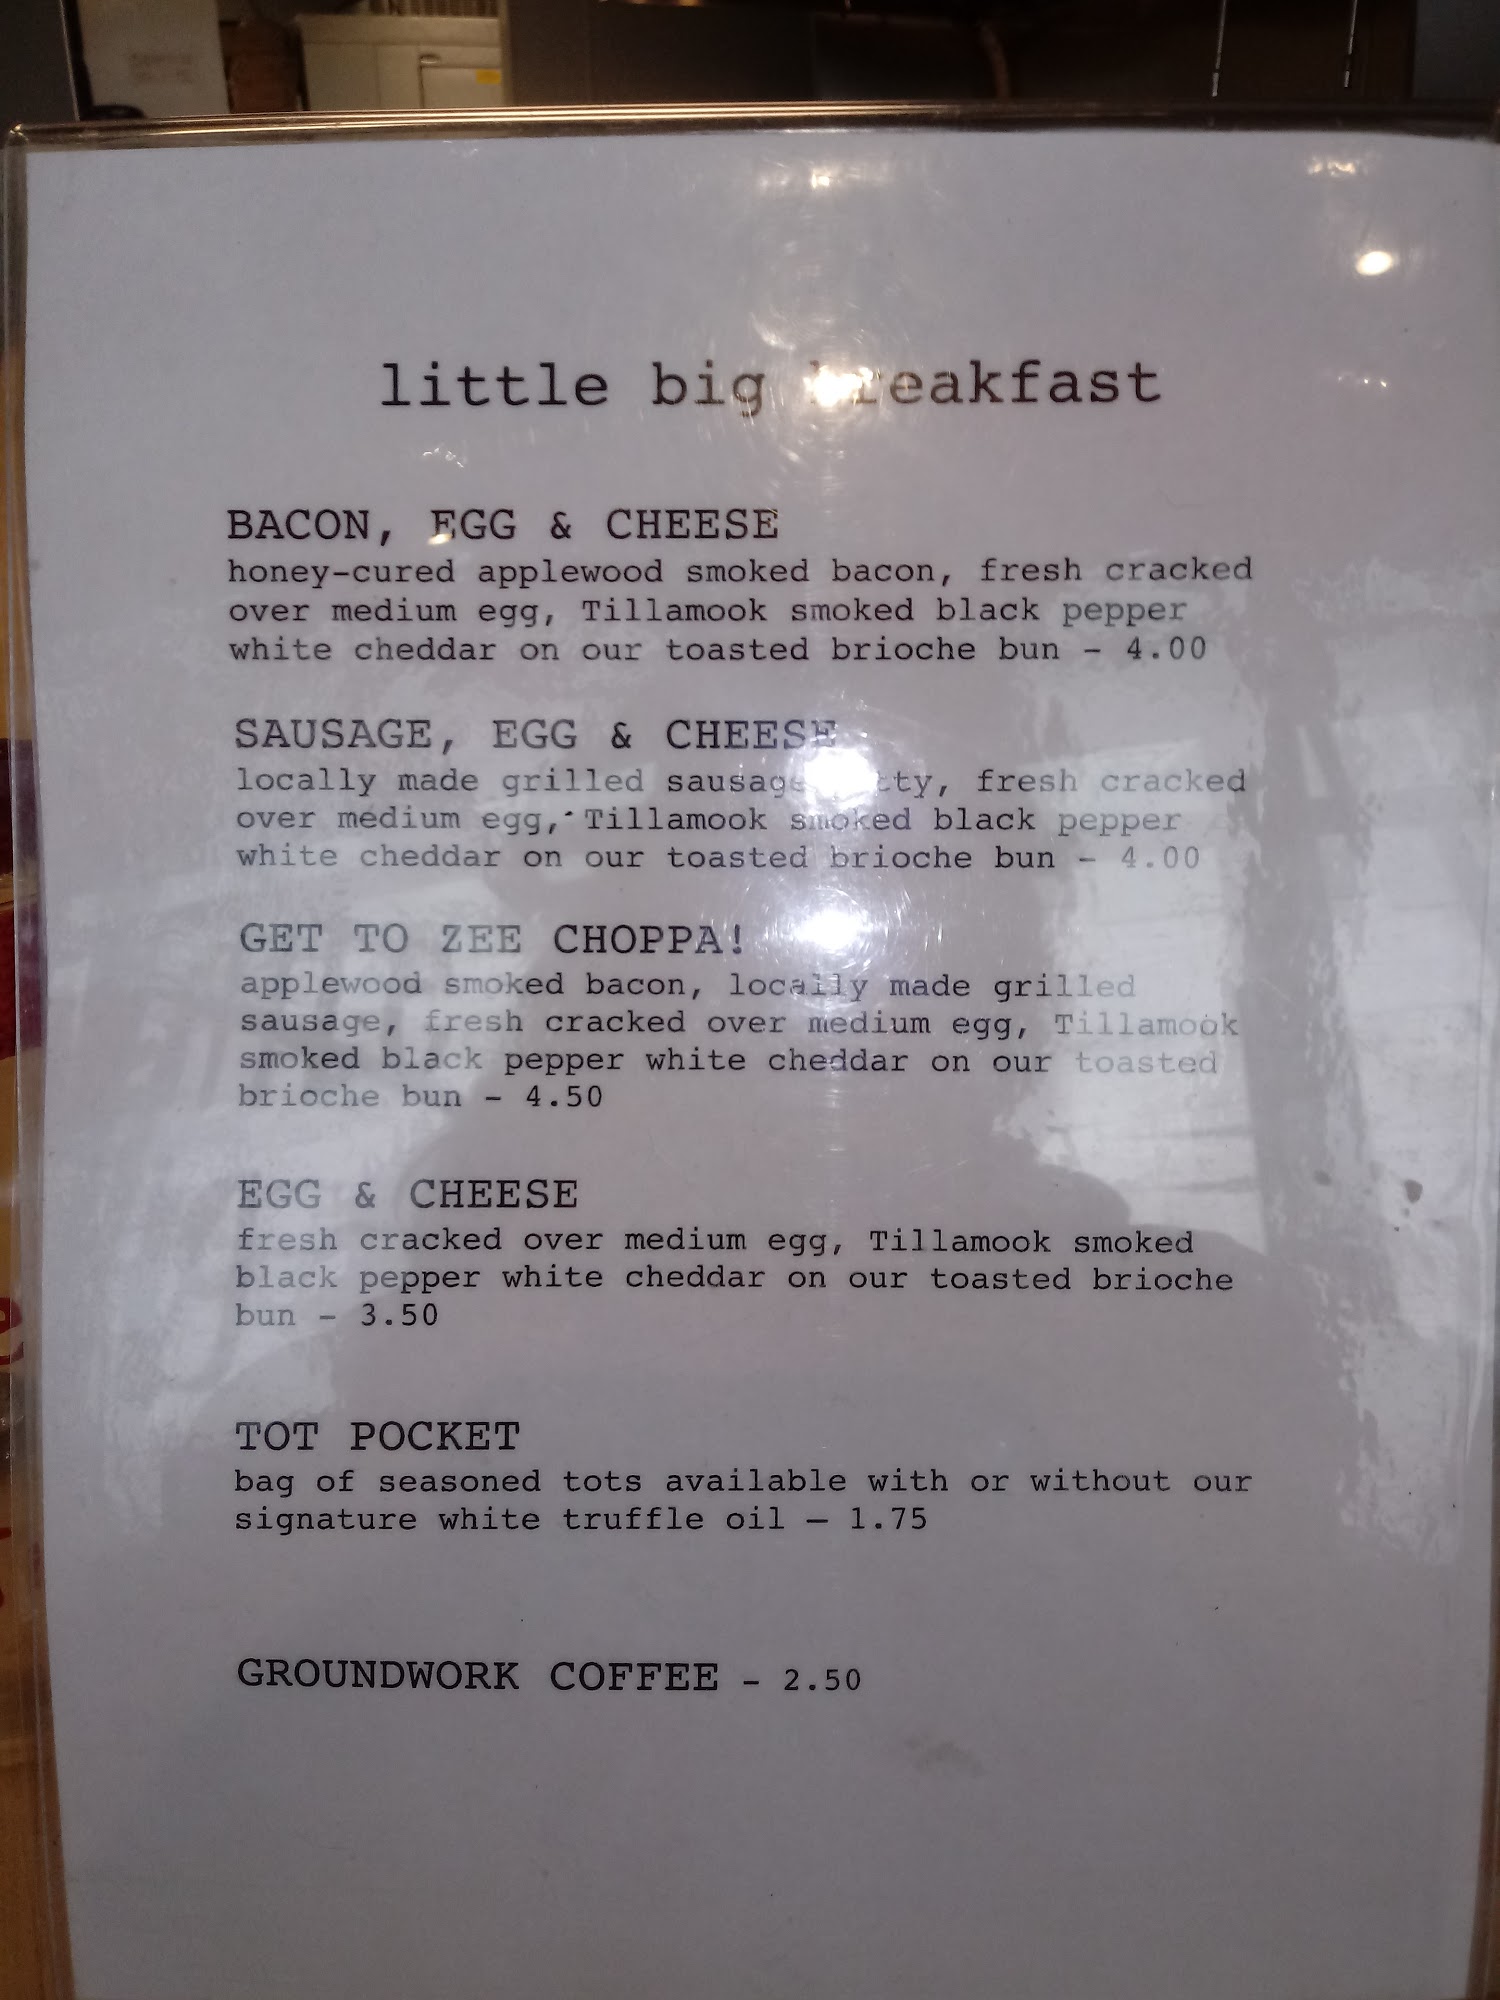 little big breakfast
BACON, EGG & CHEESE
honey-cured applewood smoked bacon, fresh cracked
over medium egg, Tillamook smoked black pepper
white cheddar on our toasted brioche bun - 4.00
SAUSAGE, EGG & CHEESE
locally made grilled sausage patty, fresh cracked
over medium egg, Tillamook smoked black pepper
white cheddar on our toasted brioche bun - 4.00
GET TO ZEE CHOPPA!
applewood smoked bacon, locally made grilled
sausage, fresh cracked over medium egg, Tillamook
smoked black pepper white cheddar on our toasted
brioche bun - 4.50
EGG & CHEESE
fresh cracked over medium egg, Tillamook smoked
black pepper white cheddar on our toasted brioche
bun - 3.50
TOT POCKET
bag of seasoned tots available with or without our
signature white truffle oil – 1.75
GROUNDWORK COFFEE - 2.50